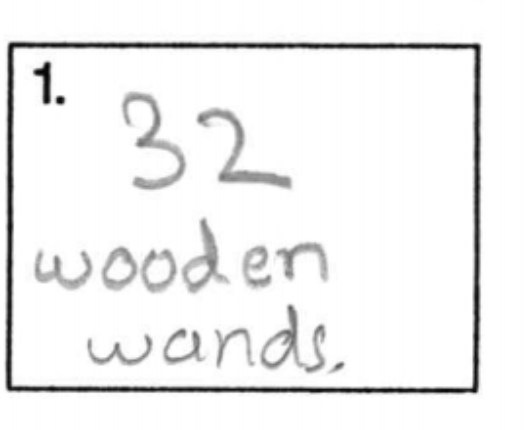 1.
32
wooden
wands.